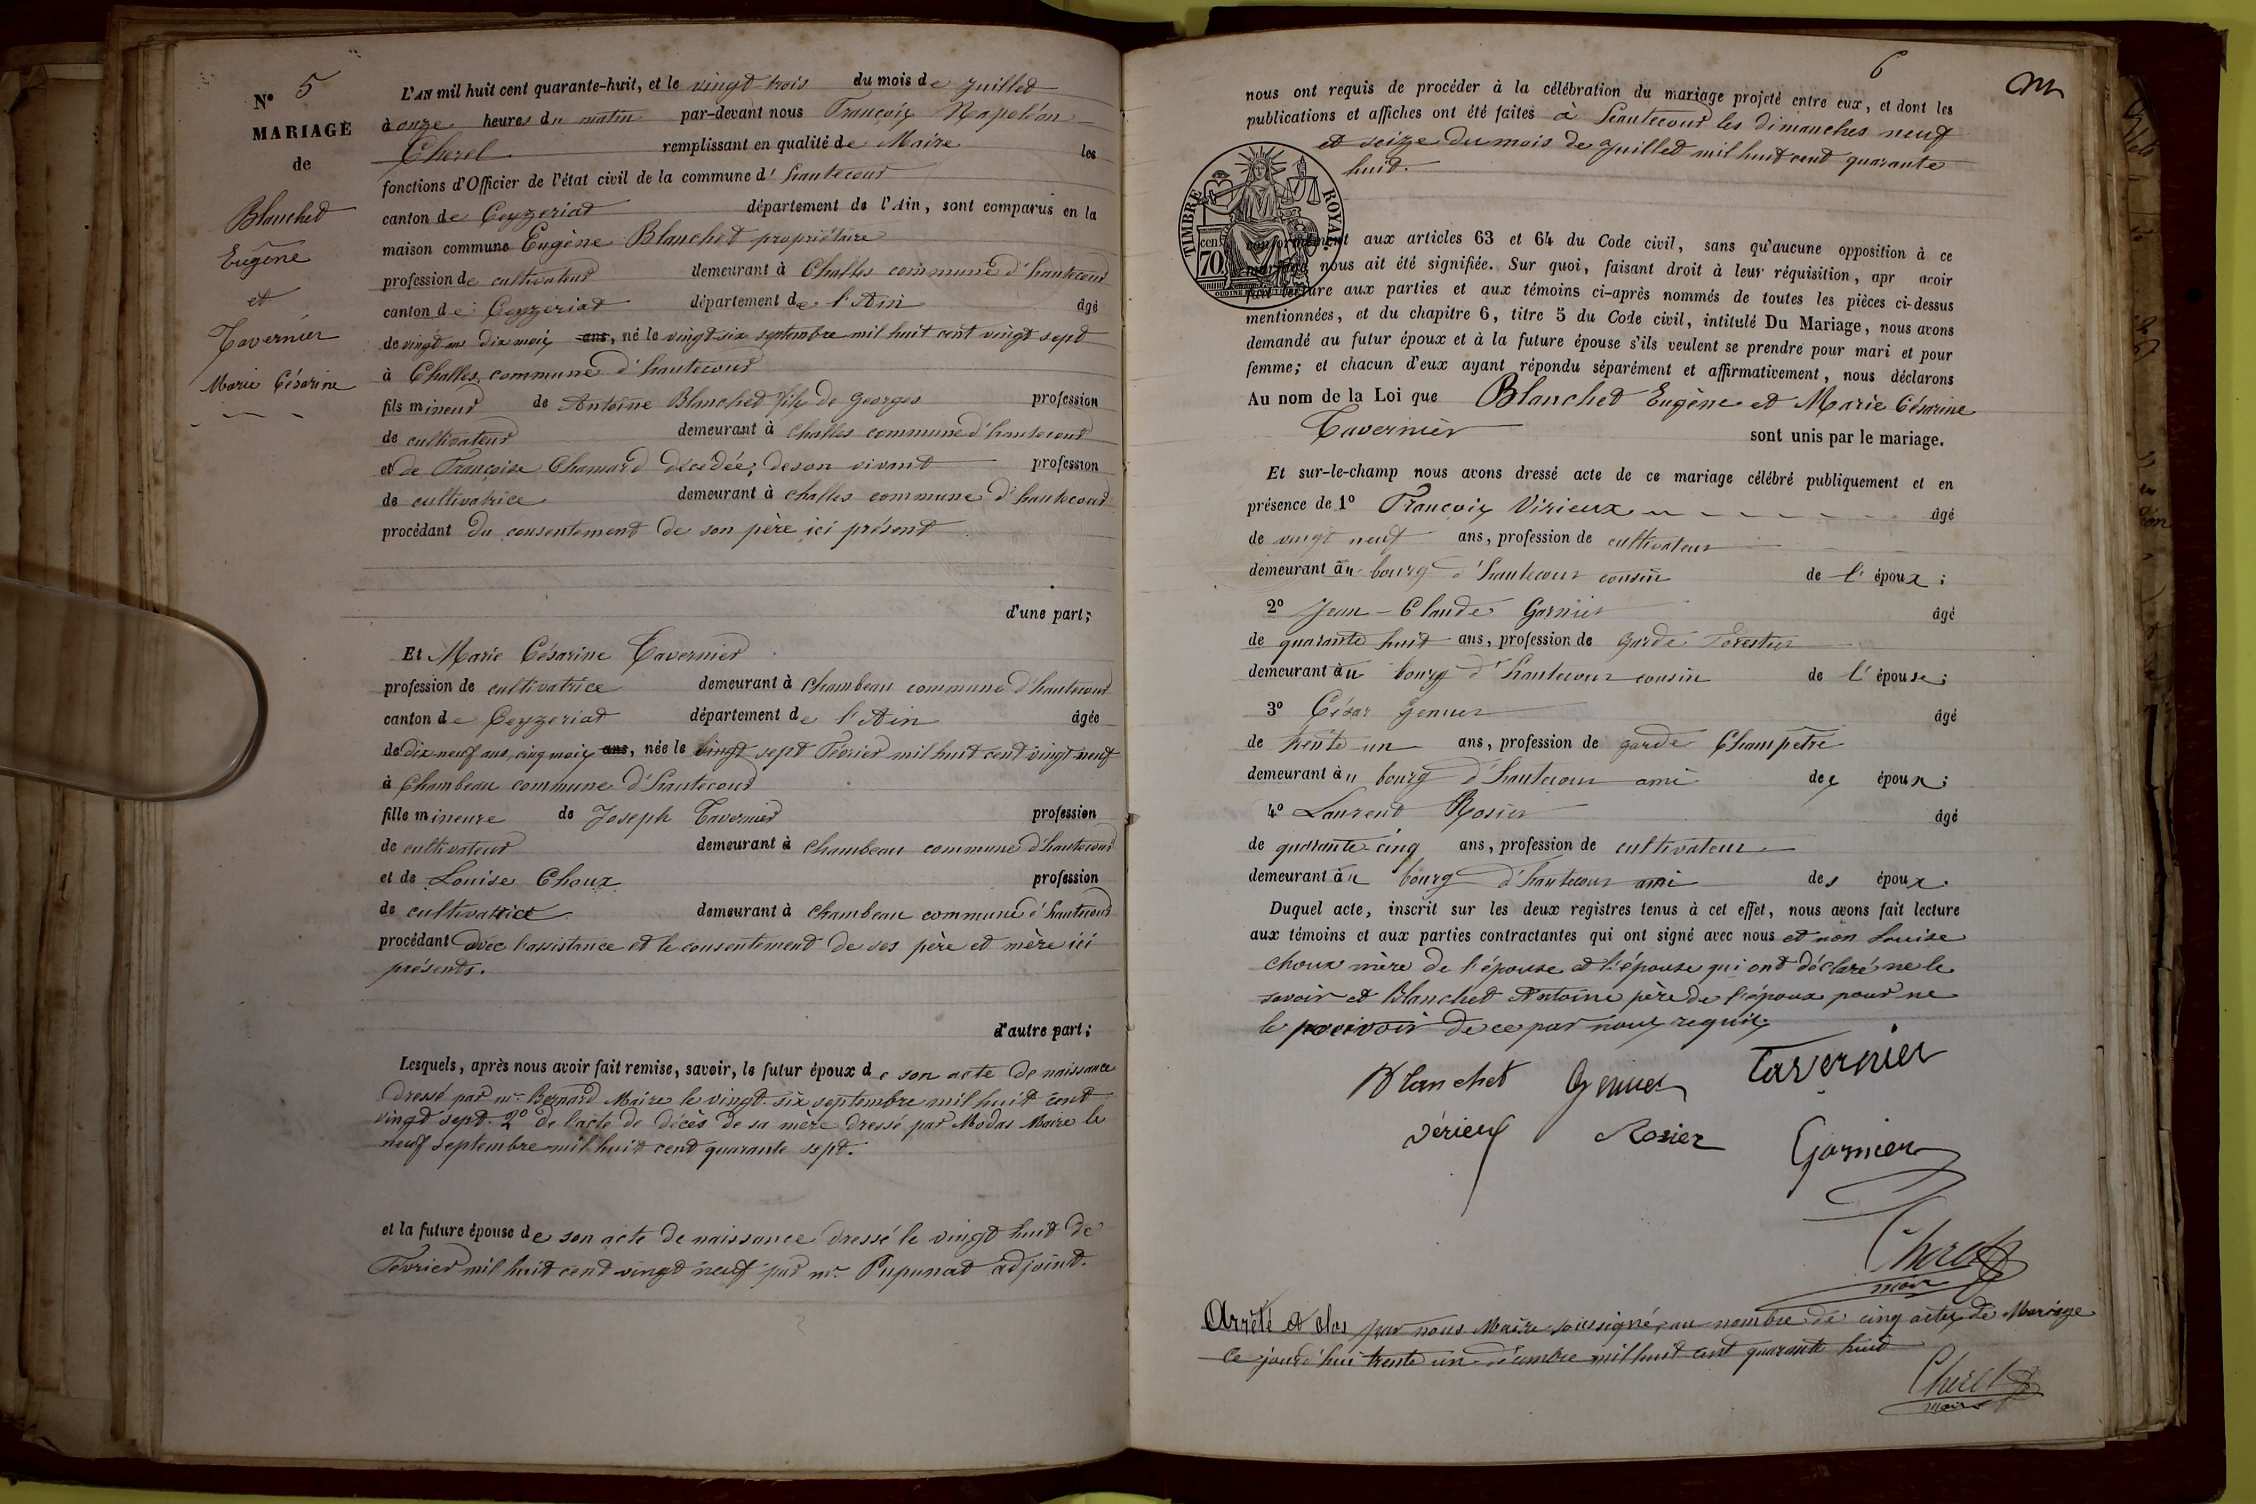 Nº 5
MARIAGE
de
Blanched
Eugêne
et
Tavernier
Marie Césarine
L'AN mil huit cent quarante-huit, et le vingt trois du mois de Juilled
à onze heures du matin par-devant nous François Napoléon
Cherel remplissant en qualité de Maire les
fonctions d'Officier de l'état civil de la commune d'hautecour
canton de Ceyzeriad département de l'Ain, sont comparus en la
maison commune Eugène Blanched propriétaire
profession de cultivateur demeurant à Challes commune d'hautecour
canton de Ceyzeriad département de l'Ain âgé
de vingt ans dix mois ans, né le vingt six septembre mil huit cent vingt sept
à Challes, commune d'hautecour
fils mineur de Antoine Blanched fils de Georges profession
de cultivateur demeurant à Challes commune d'hautecour
et de Françoise Chamard décédée, de son vivant profession
de cultivatrice demeurant à challes commune d'hautecour
procédant du consentement de son père ici présent
d'une part;
Et Marie Césarine Tavernier
profession de cultivatrice demeurant à Chambeau commune d'hautecour
canton de Ceyzeriad département de l'Ain âgée
de dix neuf ans, cinq mois ans, née le vingt sept Février mil huit cent vingt neuf
à Chambeau commune d'hautecour
fille mineure de Joseph Tavernier profession
de cultivateur demeurant à Chambeau commune d'hautecour
et de Louise Choux profession
de cultivatrice demeurant à Chambeau commune d'hautecour
procédant avec l'assistance et le consentement de ses père et mère ici
présents.
d'autre part;
Lesquels, après nous avoir fait remise, savoir, le futur époux de son acte de naissance
dressé par mr Bernard Maire le vingt-six septembre mil huit cent
vingt sept. 2º de l'acte de décès de sa mère dressé par Modas Maire le
neuf septembre mil huit cent quarante sept.
et la future épouse de son acte de naissance dressé le vingt huit de
Février mil huit cent vingt neuf par mr Pupunat adjoint.
6
nous ont requis de procéder à la célébration du mariage projeté entre eux, et dont les
publications et affiches ont été faites à hautecour les dimanches neuf
et seize du mois de Juilled mil huit cent quarante
huit.
TIMBRE ROYAL
cen
70
conformément aux articles 63 et 64 du Code civil, sans qu'aucune opposition à ce
mariage nous ait été signifiée. Sur quoi, faisant droit à leur réquisition, apr avoir
fait lecture aux parties et aux témoins ci-après nommés de toutes les pièces ci-dessus
mentionnées, et du chapitre 6, titre 5 du Code civil, intitulé Du Mariage, nous avons
demandé au futur époux et à la future épouse s'ils veulent se prendre pour mari et pour
femme; et chacun d'eux ayant répondu séparément et affirmativement, nous déclarons
Au nom de la Loi que Blanched Eugène et Marie Césarine
Tavernier sont unis par le mariage.
Et sur-le-champ nous avons dressé acte de ce mariage célébré publiquement et en
présence de 1º François Virieux âgé
de vingt neuf ans, profession de cultivateur
demeurant au bourg d'hautecour cousin de l'époux;
2º Jean-Claude Garnier âgé
de quarante huit ans, profession de Garde Forestier
demeurant au bourg d'hautecour cousin de l'épouse;
3º César Genuer âgé
de trente un ans, profession de garde Champêtre
demeurant au bourg d'hautecour ami des époux;
4º Laurend Rosier âgé
de quarante-cinq ans, profession de cultivateur
demeurant au bourg d'hautecour ami des époux.
Duquel acte, inscrit sur les deux registres tenus à cet effet, nous avons fait lecture
aux témoins et aux parties contractantes qui ont signé avec nous et non Louise
choux mère de l'épouse et l'épouse qui ont déclaré ne le
savoir et Blanched Antoine père de l'époux pour ne
le pouvoir de ce par nous requis
Blanchet Genuer Tavernier
Vérieux Rosier Garnier
Cherel
maire
Arrêté et clos par nous Maire soussigné, au nombre de cinq actes de Mariage
Ce jourd'hui trente un décembre mil huit cent quarante huit
Cherel
maire